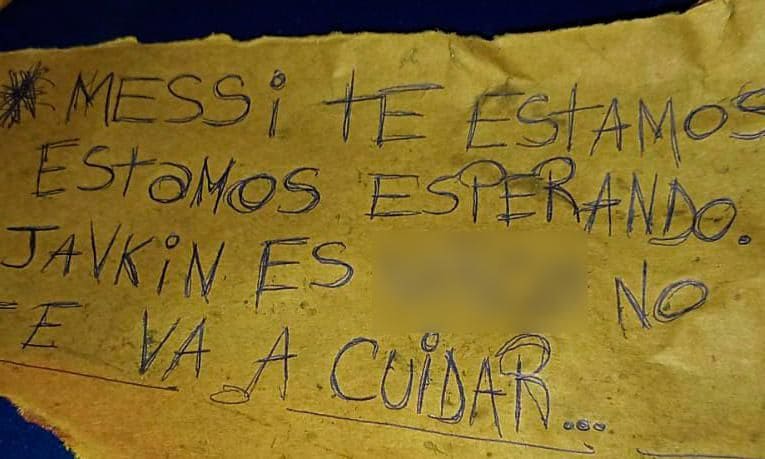 MESSi tE EStAMOS
EStaMOS ESPERANDO.
JAVKiN ES NO
E VA A CUiDAR...